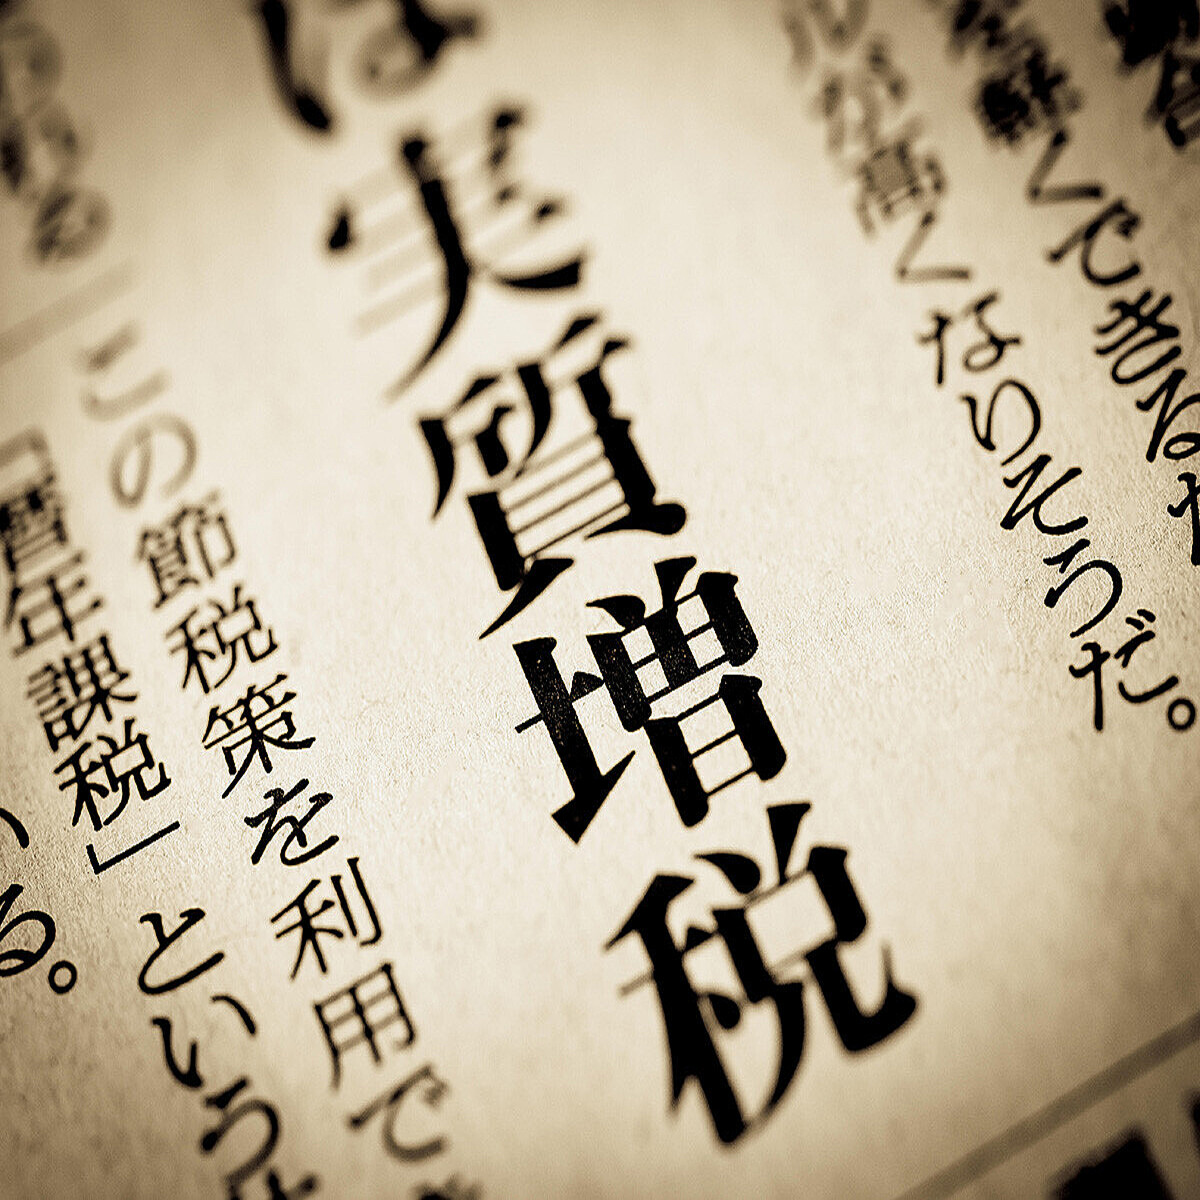 くできる
ルが高くなりそうだ。
は実質増税
この節税策を利用でき
「暦年課税」という
る。